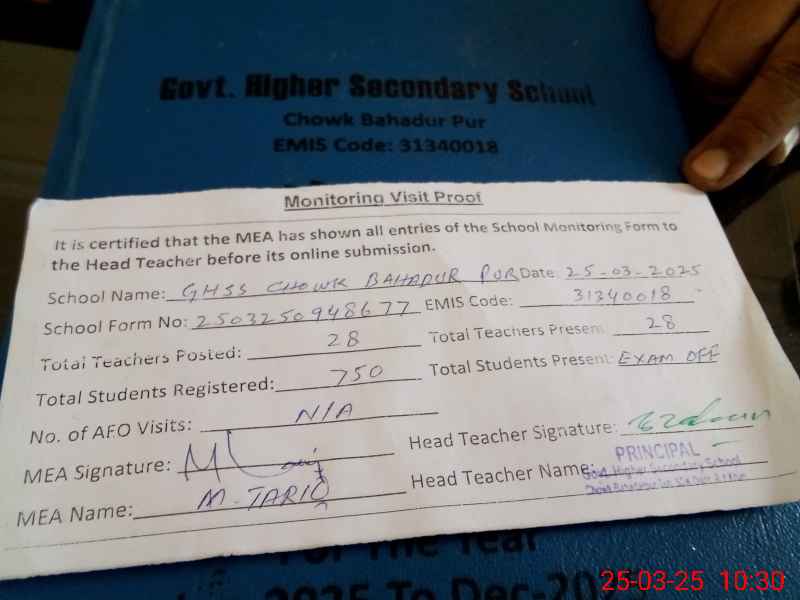 Govt. Higher Secondary School
Chowk Bahadur Pur
EMIS Code: 31340018
Monitoring Visit Proof
It is certified that the MEA has shown all entries of the School Monitoring Form to
the Head Teacher before its online submission.
School Name: GHSS CHOWK BAHADUR PUR Date: 25-03-2025
School Form No: 2503250948677 EMIS Code: 31340018
Total Teachers Posted: 28 Total Teachers Present: 28
Total Students Registered: 750 Total Students Present: EXAM OFF
No. of AEO Visits: N/A
Head Teacher Signature:
MEA Signature:
PRINCIPAL
Govt. Higher Secondary School
Head Teacher Name:
MEA Name: M-TARIQ
For The Year
2025 To Dec-20
25-03-25 10:30